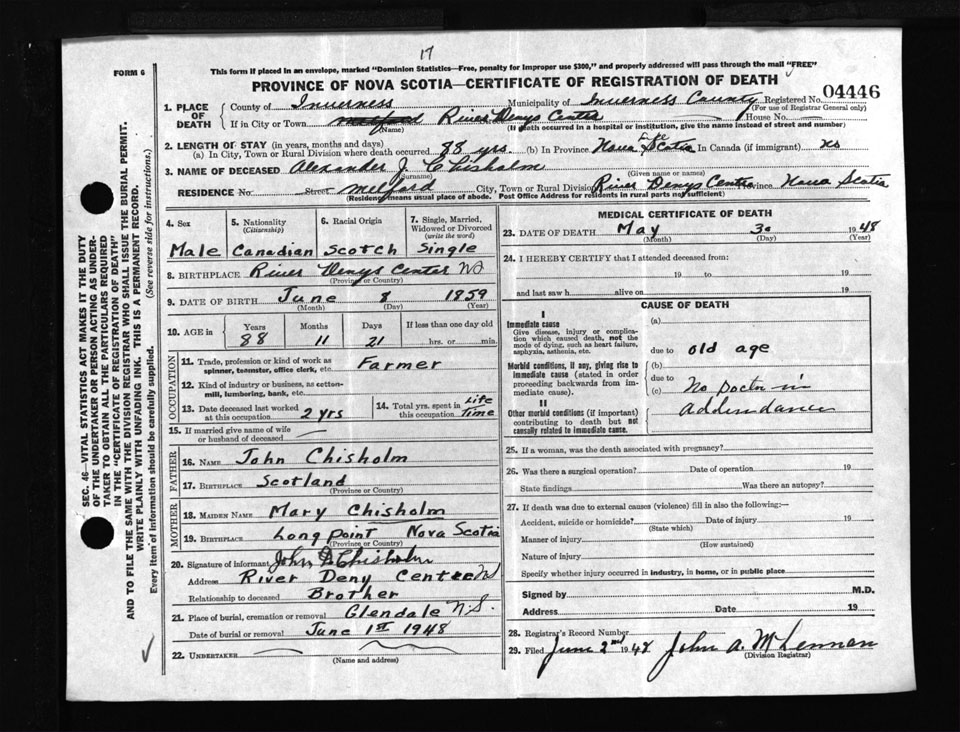 17
FORM 6
This form if placed in an envelope, marked "Dominion Statistics—Free, penalty for improper use $300," and properly addressed will pass through the mail "FREE"
PROVINCE OF NOVA SCOTIA—CERTIFICATE OF REGISTRATION OF DEATH
04446
1. PLACE OF DEATH County of Inverness Municipality of Inverness County Registered No.
(For use of Registrar General only)
If in City or Town River Denys Centre Street House No.
(Name) (If death occurred in a hospital or institution, give the name instead of street and number)
2. LENGTH OF STAY (in years, months and days)
(a) In City, Town or Rural Division where death occurred 88 yrs. (b) In Province Nova Scotia Life In Canada (if immigrant) no
3. NAME OF DECEASED Alexander J. Chisholm
(Surname) (Given name or names)
RESIDENCE No. Street Melford City, Town or Rural Division River Denys Centre Province Nova Scotia
(Residence means usual place of abode. Post Office Address for residents in rural parts not sufficient)
4. Sex Male
5. Nationality (Citizenship) Canadian
6. Racial Origin Scotch
7. Single, Married, Widowed or Divorced (write the word) Single
8. BIRTHPLACE River Denys Center NS
(Province or Country)
9. DATE OF BIRTH June 8 1859
(Month) (Day) (Year)
10. AGE in Years 88 Months 11 Days 21 If less than one day old hrs. or min.
OCCUPATION
11. Trade, profession or kind of work as spinner, teamster, office clerk, etc. Farmer
12. Kind of industry or business, as cotton-mill, lumbering, bank, etc.
13. Date deceased last worked at this occupation 2 yrs
14. Total yrs. spent in this occupation Life Time
15. If married give name of wife or husband of deceased
FATHER
16. NAME John Chisholm
17. BIRTHPLACE Scotland
(Province or Country)
MOTHER
18. MAIDEN NAME Mary Chisholm
19. BIRTHPLACE Long Point Nova Scotia
(Province or Country)
20. Signature of informant John Chisholm
Address River Deny Centre NS
Relationship to deceased Brother
21. Place of burial, cremation or removal Glendale N.S.
Date of burial or removal June 1st 1948
22. UNDERTAKER
(Name and address)
MEDICAL CERTIFICATE OF DEATH
23. DATE OF DEATH May 30 1948
(Month) (Day) (Year)
24. I HEREBY CERTIFY that I attended deceased from:
19 to 19
and last saw h alive on 19
CAUSE OF DEATH
I
Immediate cause
Give disease, injury or complication which caused death, not the mode of dying, such as heart failure, asphyxia, asthenia, etc.
(a)
due to old age
Morbid conditions, if any, giving rise to immediate cause (stated in order proceeding backwards from immediate cause).
(b)
due to
(c) No Doctor in
Addendance
II
Other morbid conditions (if important) contributing to death but not causally related to immediate cause.
25. If a woman, was the death associated with pregnancy?
26. Was there a surgical operation? Date of operation 19
State findings Was there an autopsy?
27. If death was due to external causes (violence) fill in also the following:—
Accident, suicide or homicide? Date of injury 19
(State which)
Manner of injury
(How sustained)
Nature of injury
Specify whether injury occurred in industry, in home, or in public place
Signed by M.D.
Address Date 19
28. Registrar's Record Number
29. Filed June 2nd 1948 John A. McLennan
(Division Registrar)
SEC. 46—VITAL STATISTICS ACT MAKES IT THE DUTY
OF THE UNDERTAKER OR PERSON ACTING AS UNDER-
TAKER TO OBTAIN ALL THE PARTICULARS REQUIRED
IN THE "CERTIFICATE OF REGISTRATION OF DEATH"
AND TO FILE THE SAME WITH THE DIVISION REGISTRAR WHO SHALL ISSUE THE BURIAL PERMIT.
WRITE PLAINLY WITH UNFADING INK. THIS IS A PERMANENT RECORD.
Every item of information should be carefully supplied. (See reverse side for instructions.)